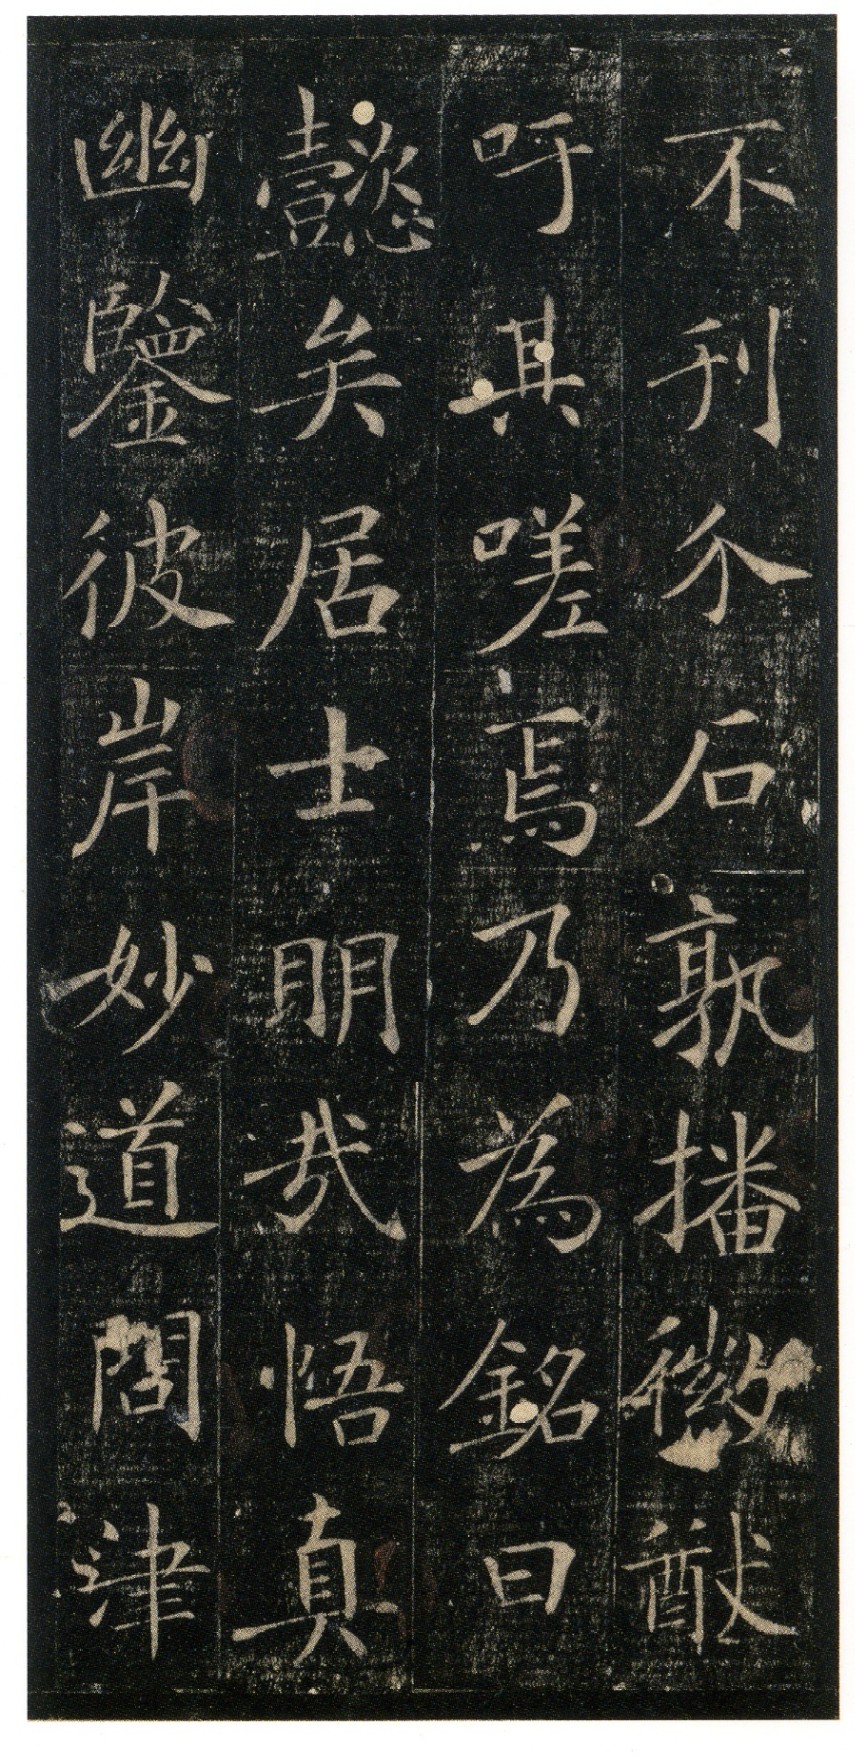 不刊介石孰播徽猷
呼其嗟焉乃為銘曰
懿矣居士明哉悟真
幽鑒彼岸妙道問津